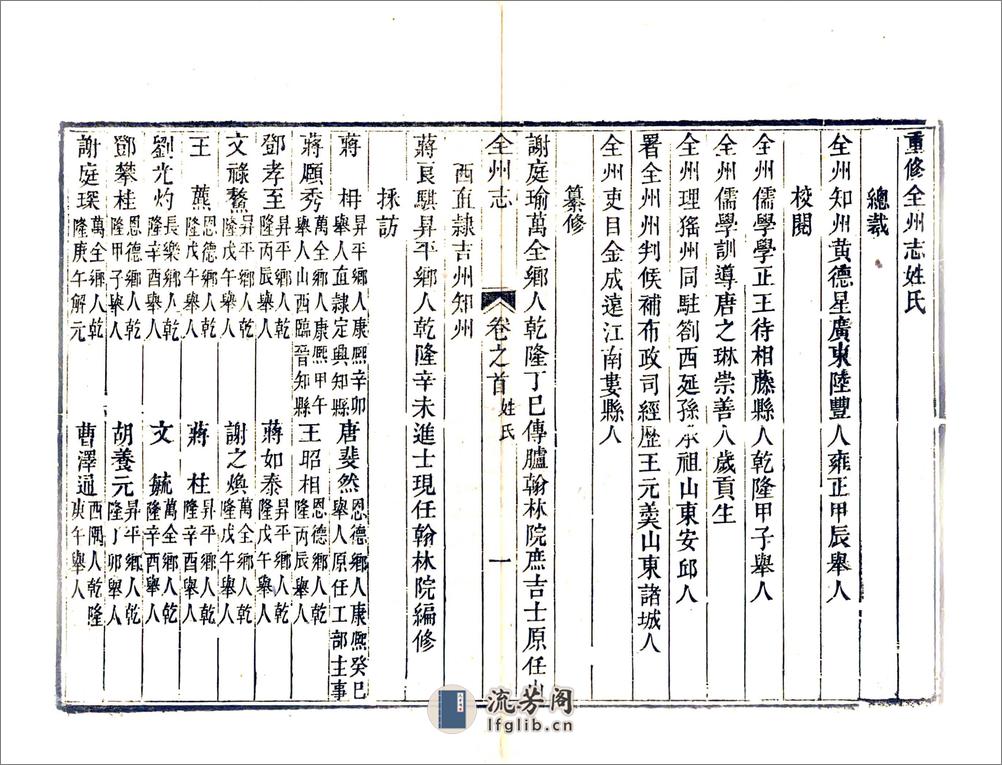 重修全州志姓氏
總裁
全州知州黃德星廣東陸豐人雍正甲辰舉人
校閱
全州儒學學正王待相藤縣人乾隆甲子舉人
全州儒學訓導唐之琳崇善人歲貢生
全州理猺州同駐劄西延孫承祖山東安邱人
署全州州判候補布政司經歷王元羙山東諸城人
全州吏目金成遠江南婁縣人
纂修
謝庭瑜萬全鄉人乾隆丁巳傳臚翰林院庶吉士原任山
全州志 卷之首 姓氏 一
西直隷吉州知州
蔣良騏昇平鄉人乾隆辛未進士現任翰林院編修
採訪
蔣 枏 昇平鄉人康熙辛卯舉人直隷定興知縣 唐斐然 恩德鄉人康熙癸巳舉人原任工部主事
蔣願秀 萬全鄉人康熙甲午舉人山西臨晉知縣 王昭相 恩德鄉人乾隆丙辰舉人
鄧孝至 昇平鄉人乾隆丙辰舉人 蔣如泰 昇平鄉人乾隆戊午舉人
文祿鰲 昇平鄉人乾隆戊午舉人 謝之煥 萬全鄉人乾隆戊午舉人
王 蕙 恩德鄉人乾隆戊午舉人 蔣 柱 昇平鄉人乾隆辛酉舉人
劉光灼 長樂鄉人乾隆辛酉舉人 文 毓 萬全鄉人乾隆辛酉舉人
鄧攀桂 恩德鄉人乾隆甲子舉人 胡養元 昇平鄉人乾隆丁卯舉人
謝庭琛 萬全鄉人乾隆庚午解元 曹澤通 西隅人乾隆庚午舉人
流芳阁
lfglib.cn